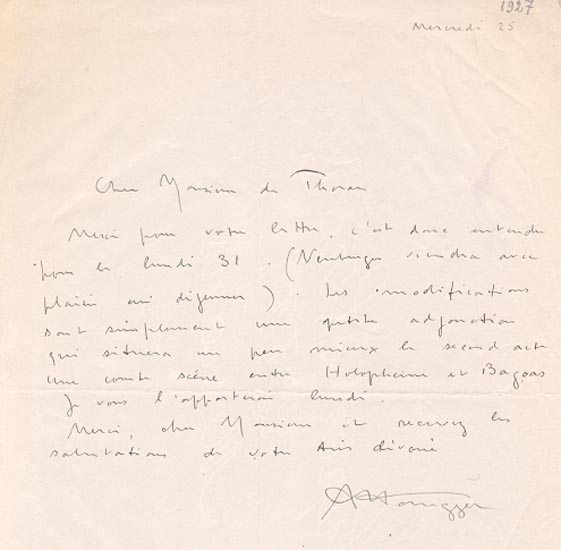 1927
Mercredi 25
Cher Monsieur de Thoran
Merci pour votre lettre, c'est donc entendu
pour le lundi 31. (Neuburger viendra avec
plaisir au déjeuner). Les modifications
sont simplement une petite adjonction
qui situera un peu mieux le second acte
une courte scène entre Holopherne et Bagoas
Je vous l'apporterai lundi.
Merci, cher Monsieur et recevez les
salutations de votre très dévoué
AHonegger